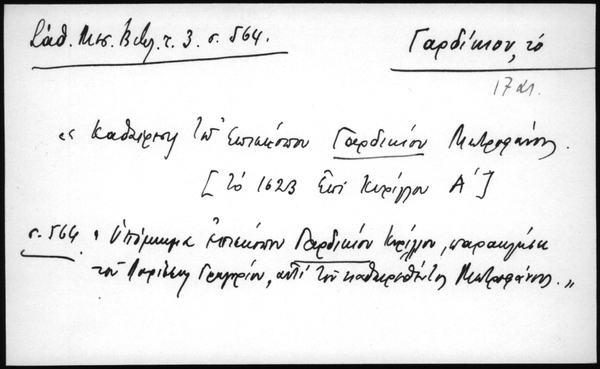 Σάθ. Μεσ. Βιβλ. τ. 3. σ. 564.
Γαρδίκιον, τό
17 αι.
"Καθαίρεσις τοῦ Ἐπισκόπου Γαρδικίου Μητροφάνους.
[τό 1623 ἐπί Κυρίλλου Α']
σ. 564 "Ὑπόμνημα ἐπισκόπου Γαρδικίου Κυρίλλου, παρακλήσει
τοῦ Λαρίσσης Γρηγορίου, ἀντί τοῦ καθαιρεθέντος Μητροφάνους."